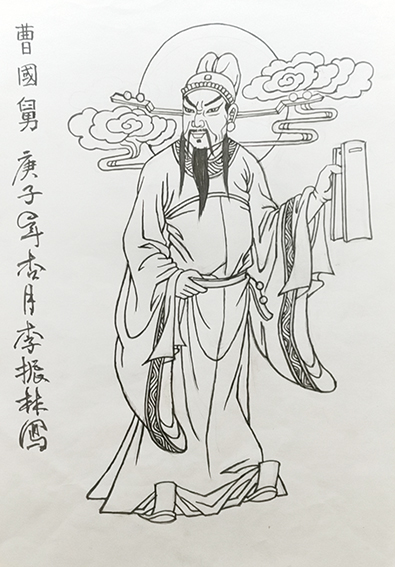 曹國舅 庚子年杏月李振林